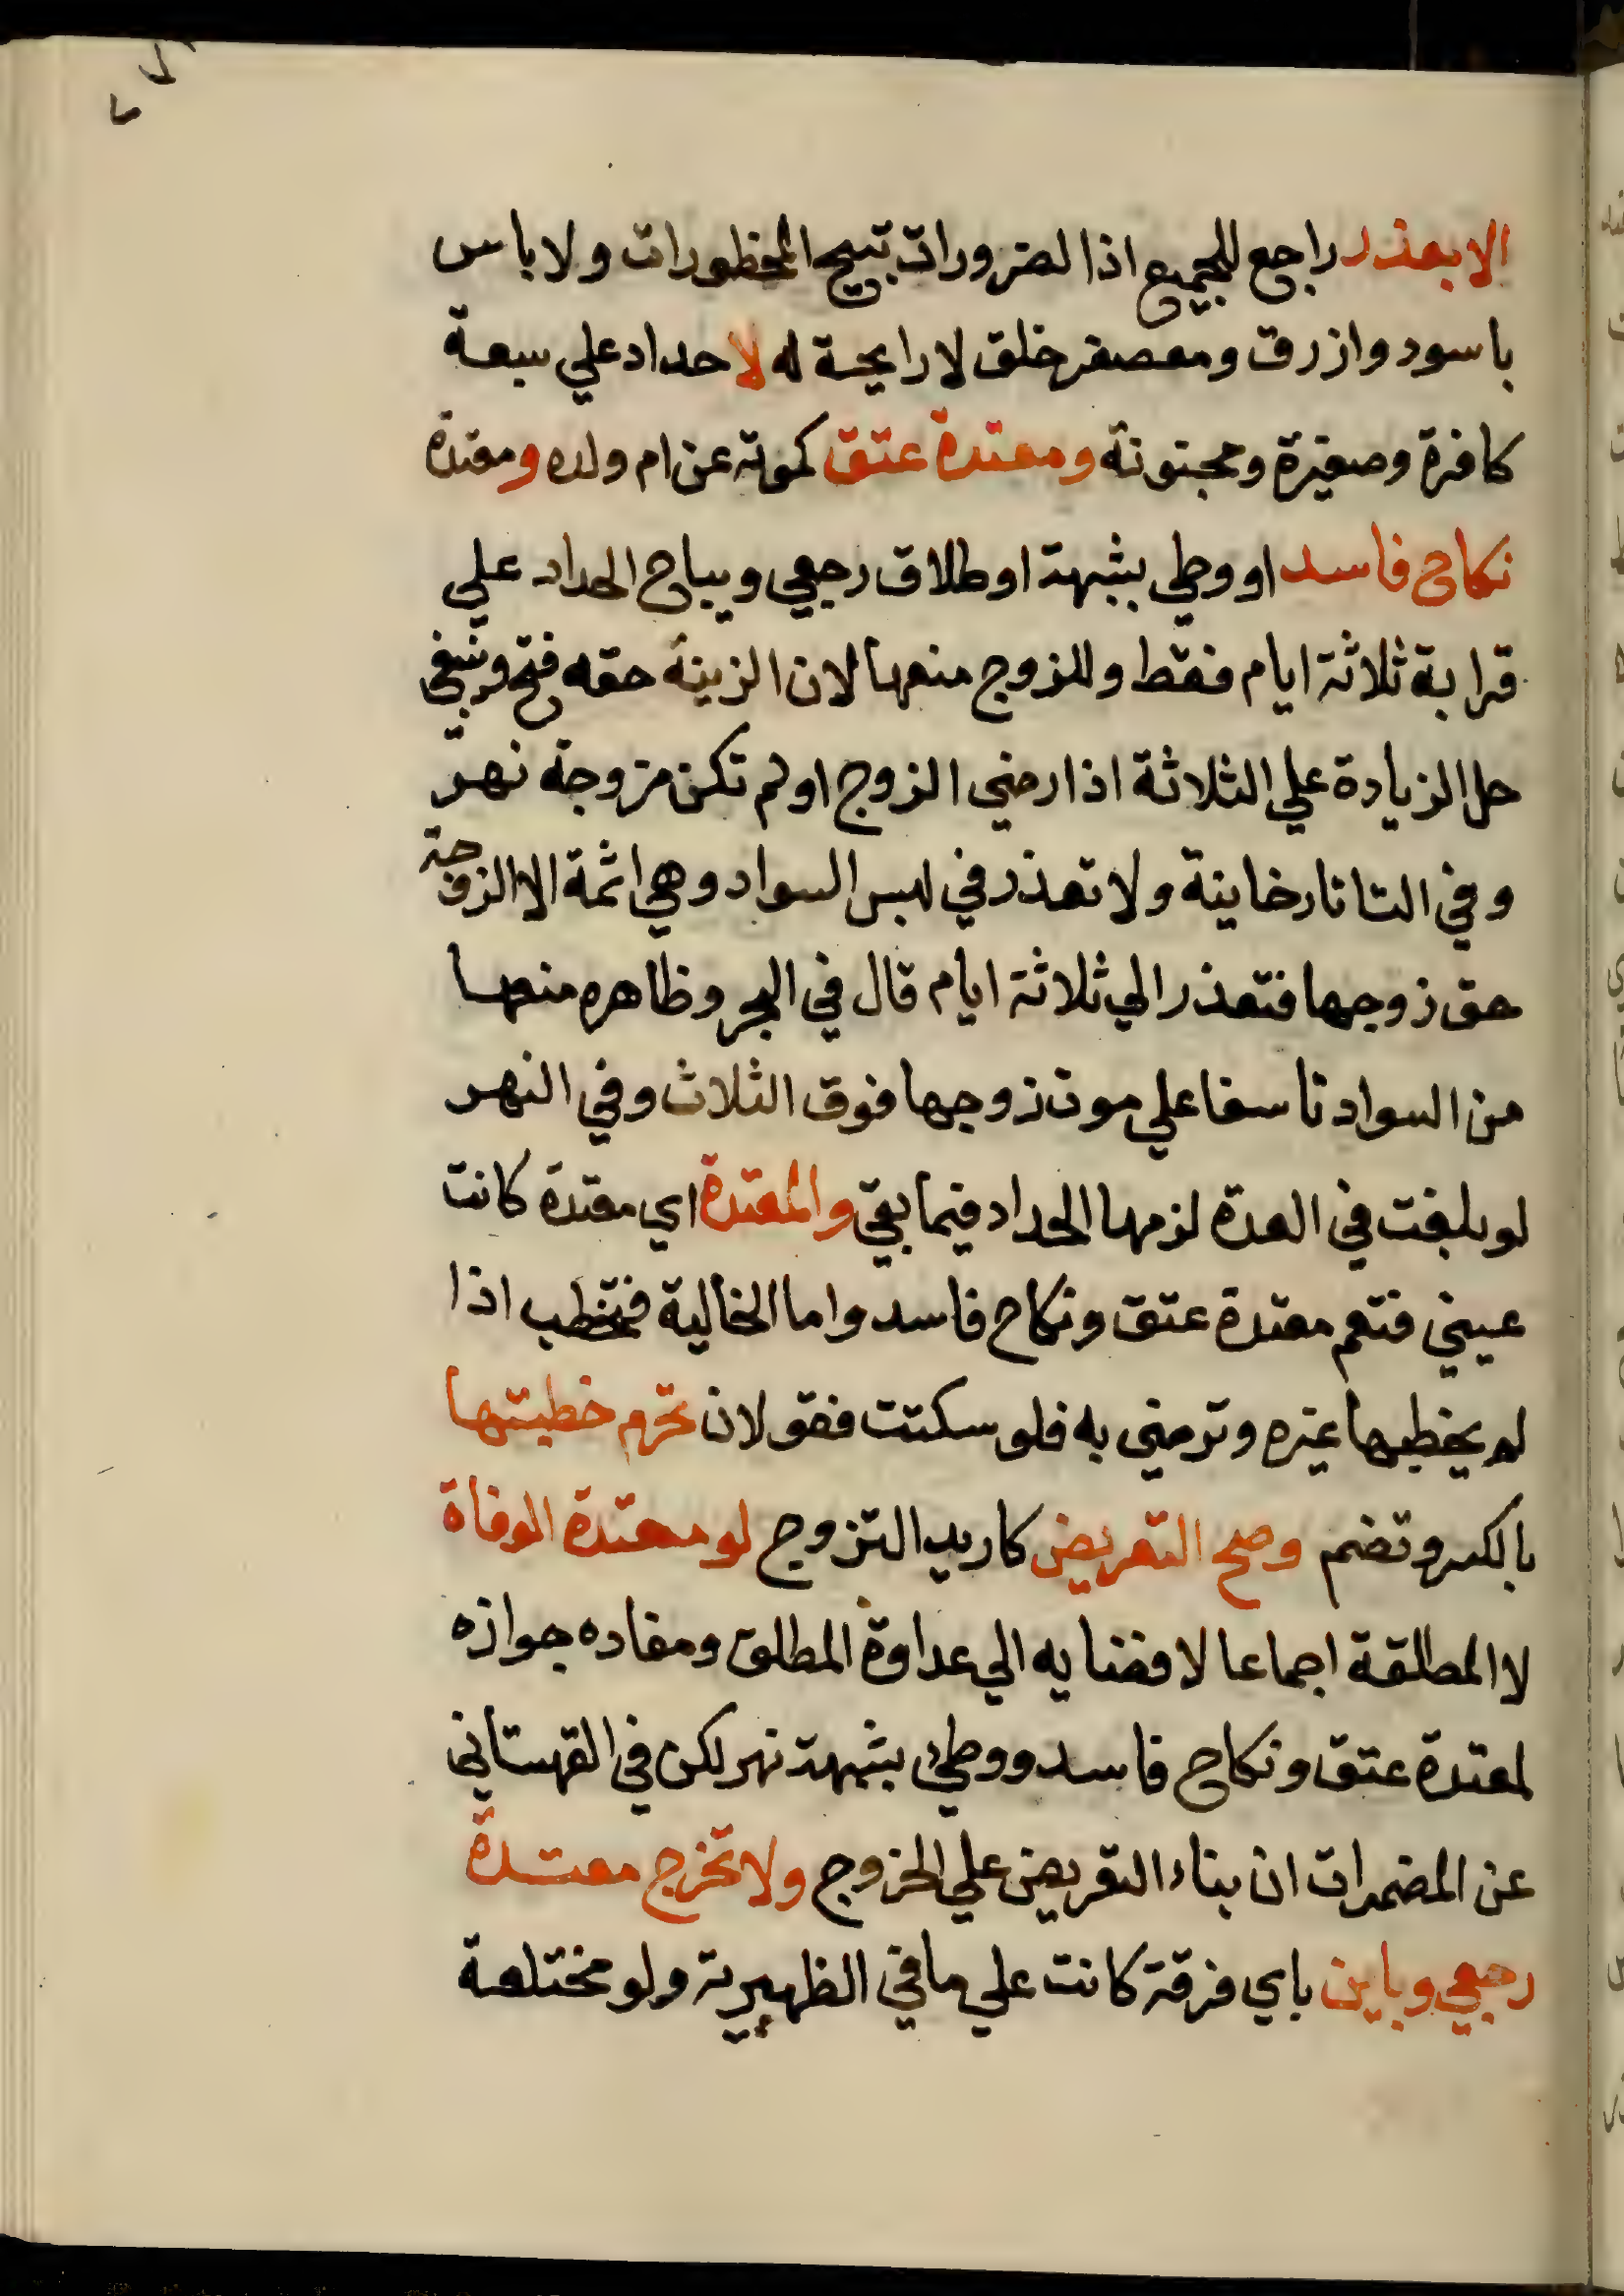 الا بعذر راجع للجميع اذا لضرورات تبيح المحظورات ولا باس
باسود وازرق ومعصفر خلق لا رايحة له لا حداد علي سبعة
كافرة وصغيرة ومجنونة ومعتدة عتق كموته عن ام ولده ومعتدة
نكاح فاسد او وطي بشبهة او طلاق رجعي ويباح الحداد علي
قرابة ثلاثة ايام فقط وللزوج منعها لان الزينة حقه فتح وينبغي
حل الزيادة علي الثلاثة اذا رضي الزوج او لم تكن مزوجة نهر
وفي التاتارخاينة ولا تعذر في لبس السواد وهي اثمة الا الزوجة
حق زوجها فتعذر الي ثلاثة ايام قال في البحر وظاهره منعها
من السواد تاسفا علي موت زوجها فوق الثلاث وفي النهر
لو بلغت في العدة لزمها الحداد فيما بقي والمعتدة اي معتدة كانت
عيني فتعم معتدة عتق ونكاح فاسد واما الخالية فتخطب اذا
لم يخطبها غيره وترضي به فلو سكتت فقولان تحرم خطبتها
بالكسر وتضم وصح التعريض كاريد التزوج لو معتدة الوفاة
لا المطلقة اجماعا لافضايه الي عداوة المطلق ومفاده جوازه
لمعتدة عتق ونكاح فاسد ووطي بشبهة نهر لكن في القهستاني
عن المضمرات ان بناء التعريض علي الخروج ولا تخرج معتدة
رجعي وباين باي فرقة كانت علي ما في الظهيرية ولو مختلعة